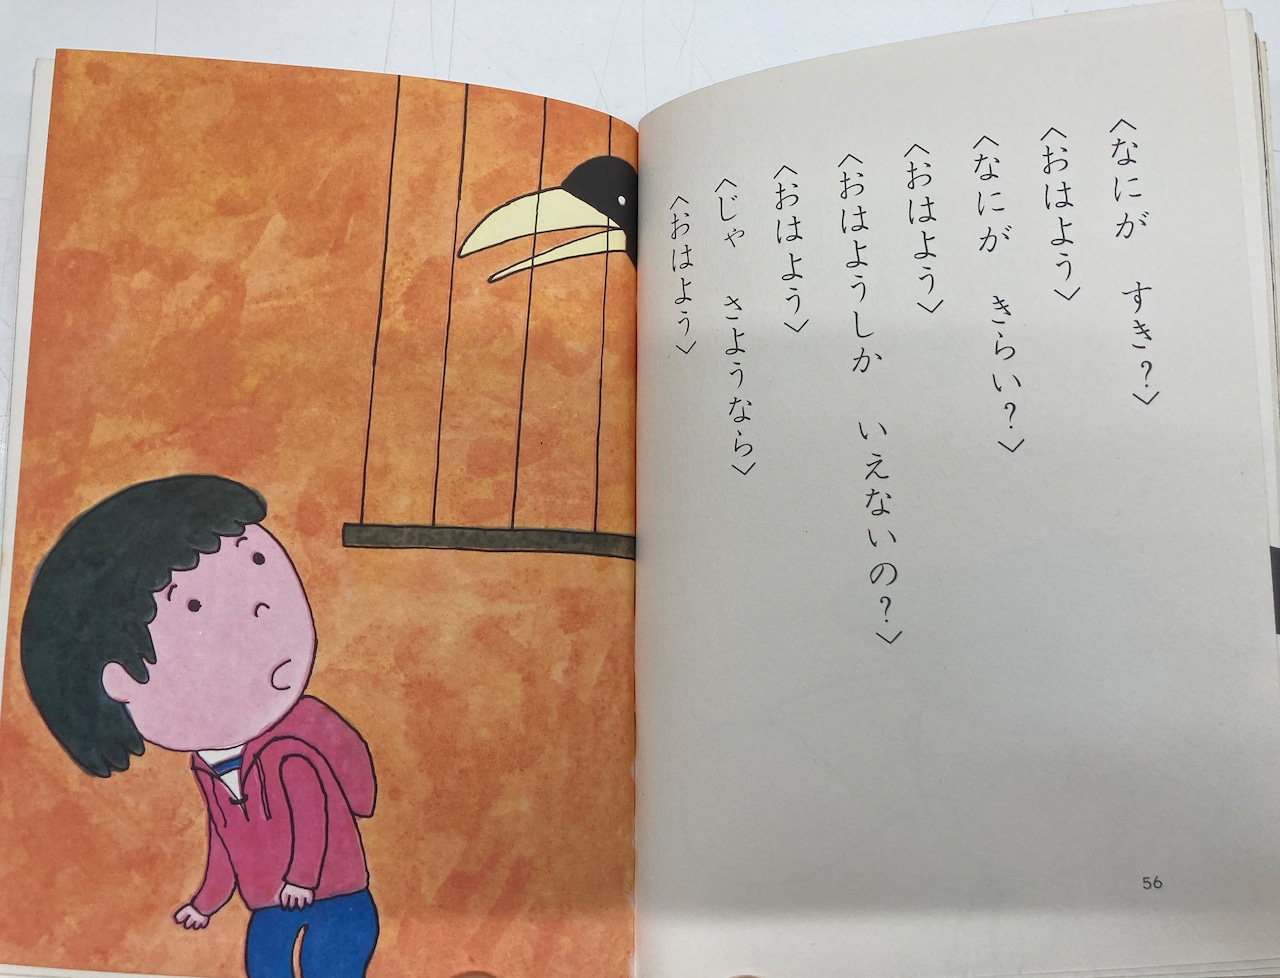 〈なにが　すき？〉
〈おはよう〉
〈なにが　きらい？〉
〈おはよう〉
〈おはようしか　いえないの？〉
〈おはよう〉
〈じゃ　さようなら〉
〈おはよう〉
56